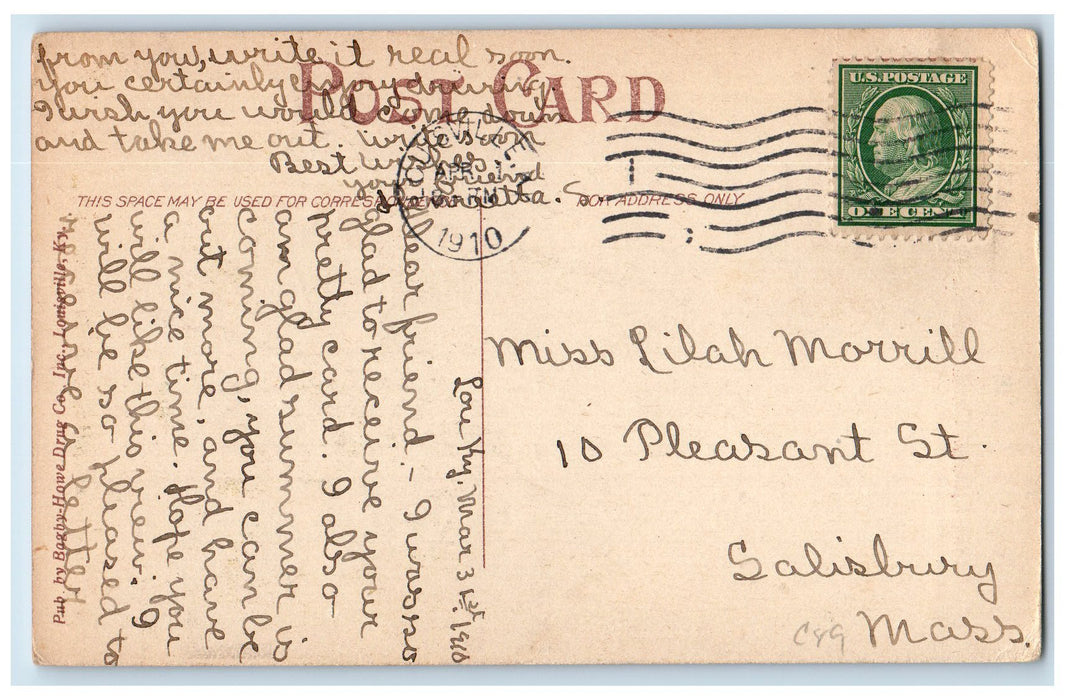 POST CARD
THIS SPACE MAY BE USED FOR CORRESPONDENCE
FOR ADDRESS ONLY
U.S. POSTAGE
ONE CENT
LOUISVILLE
APR 1
PM
1910
Lou Ky, Mar 31st, 1910
Dear friend. - I was so
glad to receive your
pretty card. I also
am glad summer is
coming, you can be
out more, and have
a nice time. Hope you
will like this view. I
will be so pleased to
receive a letter
from you, write it real soon.
You certainly enjoy
I wish you would come down
and take me out. write soon
Best wishes
your friend
S.
Miss Lilah Morrill
10 Pleasant St.
Salisbury
Mass.
C89
Pub. by Bagby-Howe Drug Co., Inc., Louisville, Ky.